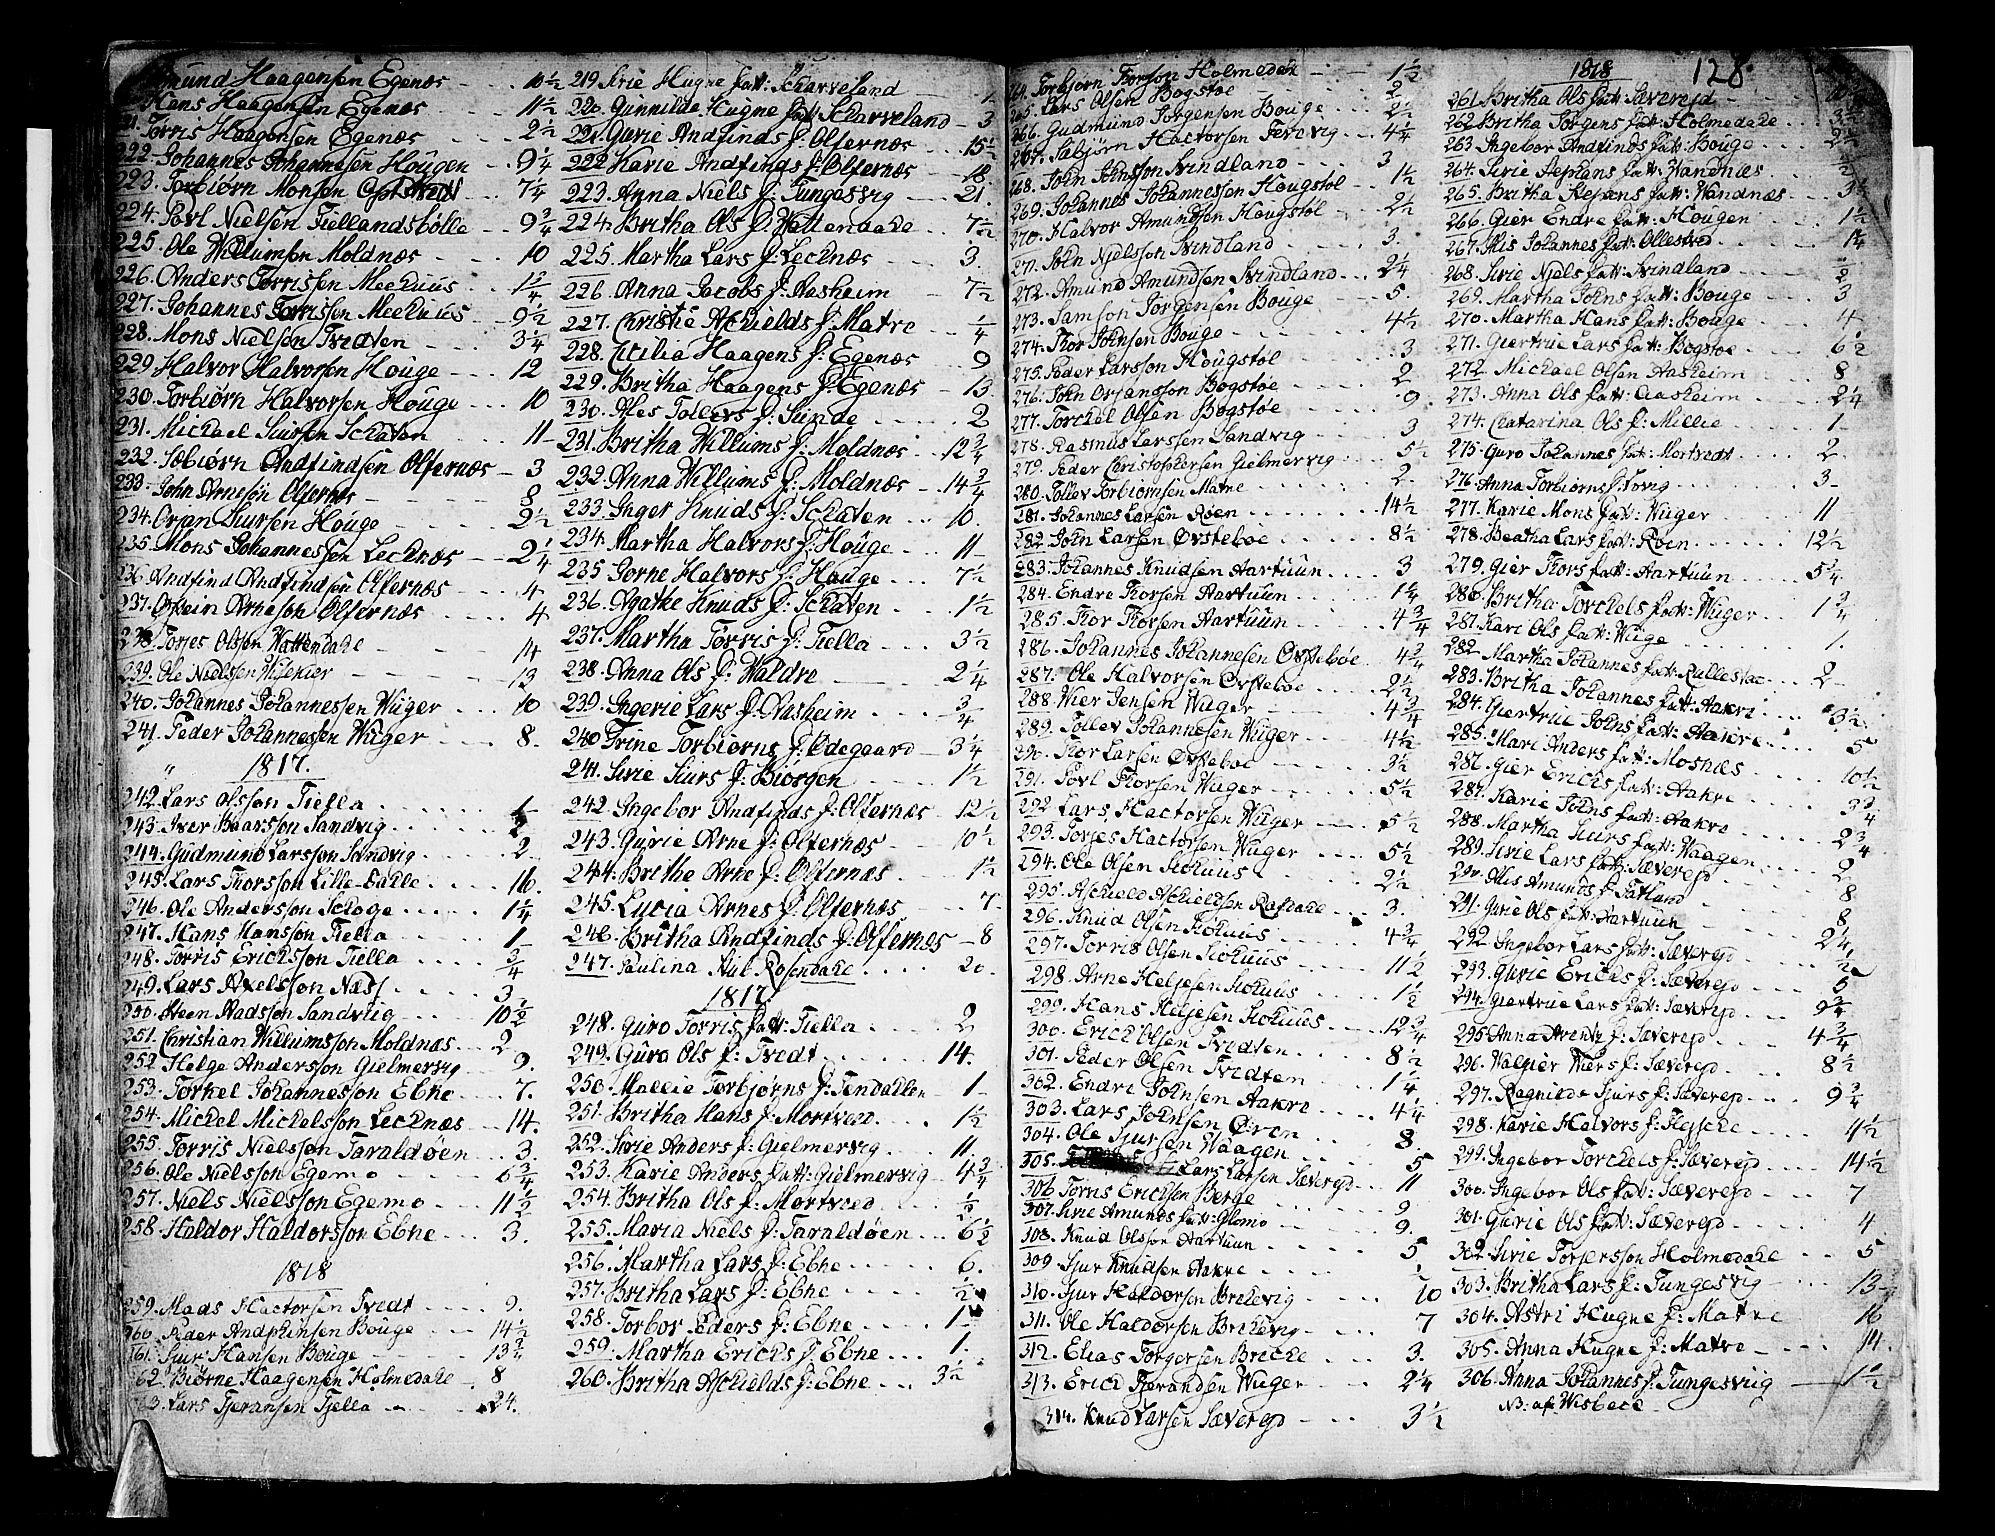 mund Haagensen Egenæs - - 10 1/2
Hans Haagensen Egenæs - - 11 1/2
21. Torris Haagensen Egenæs - - 2 1/2
222. Johannes Johannesen Hougen 9 1/4
223. Torbiørn Monsen - - 7 1/4
224. Povl Nielsen Tiellandsbølle - 9 3/4
225. Ole Willumsen Moldnæs - - 10
226. Anders Torrissen Meehuus - - 1 3/4
227. Johannes Torrissen Meehuus - 9 1/2
228. Mons Nielsen Tvedten - - - 3 1/4
229 Halvor Halvorsen Houge - - - 12
230. Torbiørn Halvorsen Houge - - - 10
231. Michael Siursen Schaten - - - 11
232. Sæbiørn Andfindsen Olfernæs - 3
233. John Arnesøn Olfernæs - - - 8
234. Orjan Siursen Houge - - - 9 1/2
235. Mons Johannessen Lecknæs - - 2 1/4
236 Andfind Andfindsen Olfernæs - - 4
237. Ofstein Arneson Olfernæs - - - 4
238 Torjes Olsson Wattendahl - - 14
239. Ole Nielssen - - - 13
240. Johannes Johannessen Wuger - - - 10
241. Peder Johannessen Wuger - - 8.
1817.
242. Lars Olsson Tiella - - - 1
243. Iver Baarsson Sandvig - - - 2
244. Gudmund Larsson Sandvig - - - 2
245. Lars Thorsson Lille-Dahle - - - 16.
246. Ole Andersson Schoge - - - 1 1/4
247. Hans Hansson Tiella - - - 1
248. Torris Ericksson Tiella - - - 3/4
249. Lars Axelsson Næss - - - 3
250. Steen Madsson Sandviig - - - 10 1/2
251. Christian Willumsson Moldnæs - - 2
252 Helge Andersson Gielmervig - - - 9.
253. Torkel Johannesson Ebne - - - 7.
254. Mickel Mickelsson Lecknæs - - 14.
255. Torris Nielsson Taraldøen - - - 3.
256. Ole Nielsson Egemo - - - 6 3/4
257. Niels Nielsson Egemo - - - 11 1/2
258. Haldor Haldorsson Ebne - - - 3.
1818
259. Mads Hactorsen Tvedt - - - 9.
260. Peder Andphinsen Bouge - - - 14 1/2
261. Siur Hansen Bouge - - - 13 3/4
262. Biørne Haagensen Holmedahl - 8
263. Lars Tjeransen Tjella - - 24.
219. Sirie Hugne Datt: Skarveland - - 1.
220. Gunnilde Hugne Datt Skarveland - 3
221. Gurie Andfinds D. Olfernæs - - 15 1/2
222 Karie Andfinds D: Olfernæs - - 18
223. Anna Niels D: Tungesvig - - 21.
224. Britha Ols D. Wattendahle - - 7 1/2
225. Martha Lars D: Lecknæs - - 3
226. Anna Jacobs D. Aasheim - - 7 1/2
227. Christie Aschields D. Matre - - 1/4
228. Cicilia Haagens D. Egenæs - - 9
229. Britha Haagens D. Egenæs - - 13
230. Ales Tollevs D. Sunde - - - 2
231. Britha Willums D: Moldnæs - 12 3/4
232. Anna Willums D. Moldnæs - 14 3/4
233. Inger Knuds D. Schaten - - 10.
234. Martha Halvors D. Houge - - - 11
235 Gorne Halvors D. Houge - - - 7 1/2
236. Agathe Knuds D. Schaten - - - 1 1/2
237. Martha Torris D. Tiella - - - 3 1/2
238. Anna Ols D. Waldre - - - 2 1/4
239. Ingerie Lars D. Aasheim - - - 3/4
240 Trine Torbiørns D. Ødegaard - 3 1/4
241. Sirie Siurs D. Biorgen - - - 1 1/2
242. Ingebor Andfinds D. Olfernæs - 12 1/2
243. Gurie Arne D. Olfernæs - - 10 1/2
244. Brithe Arne D. Olfernæs - - - 1 1/2
245. Lucia Arnes D. Olfernæs - - 7.
246. Britha Andfinds D. Olfernæs - 8
247. Paulina Rosendahl - - - 20.
1817.
248. Guro Torris Datt: Tiella - - - 2
249. Guro Ols D: Tvedt - - - 14.
250. Mallie Torbjørns D. Tendahlen - 1
251. Britha Hans D. Mortved - - - 1 1/2
252. Sirie Anders D: Gielmervig - - 11.
253. Karie Anders Datt: Gielmervig - 4 3/4
254. Britha Ols D. Mortveed - - - 1/2
255. Maria Niels D. Taraldøen - - - 6 1/2
256. Martha Lars D: Ebne - - - 6.
257. Britha Lars D. Ebne - - - 1/2
258. Torbor Peders D: Ebne - - - 1
259. Martha Ericks D. Ebne - - - 1.
260. Britha Aschields D: Ebne - - - 3 1/2
264. Torbjørn Torson Holmedal - - - 1 1/2
265. Lars Olsen Bogstøe - - - 2
266. Gudmund Jørgensen Bouge - - 2 1/2
267. Sæbjørn Hactorsen Ferevig - - 4 1/4
268. John Johnsson Svindland - - - 3
269. Johannes Johannessen Hougstøl - - 1 1/2
270. Halvor Amundsen Hougstøl - - 2 1/2
271. John Njelsson Svindland - - - 3.
272. Amund Amundsen Svindland - - 2 1/4
273. Samson Jørgensen Bouge - - - 5.
274. Tor Johnsen Bouge - - - 4 1/2
275. Peder Larsson Hougstøl - - - 3
276. John Orjansson Bogstøe - - - 2
277. Torckel Olsen Bogstøe - - - 9
278. Rasmus Larssen Sandvig - - - 3
279. Peder Christophersen Gielmervig - - 5 1/2
280. Tollev Torbiørnsen Matre - - - 2.
281. Johannes Larsen Røen - - - 14 1/2
282. John Larsen Øvstebøe - - - 8 1/2
283. Johannes Knudsen Aartuun - - - 3
284. Endre Thorsen Aartuun - - - 1 1/4
285. Thor Thorsen Aartuun - - - 4 3/4
286. Johannes Johannesen Øvstebøe - 4 3/4
287. Ole Halvorsen Øvstebøe - - - 2 1/2
288. Wier Jensen Wuger - - - 4 3/4
289. Tollev Johannesen Wuger - - - 4 1/2
290. Thor Larsen Øvstebøe - - - 3 1/2
291. Povl Thorsen Wuger - - - 5 1/2
292 Lars Hactorsen Wuger - - - 5 1/2
293. Torjes Hactorsen Wuger - - - 5 1/2
294. Ole Olsen Stohuus - - - 2 1/2
295. Aschield Aschieldsen Rafdahl - - 3.
296. Knud Olsen Stohuus - - - 4 3/4
297. Torris Olsen Stohuus - - - 11 1/2
298. Arne Heljesen Stohuus - - - 1 1/2
299. Hans Heljesen Stohuus - - - 12 3/4
300. Erick Olsen Tvedten - - - 8 1/2
301. Peder Olsen Tvedten - - - 1 1/4
302. Endre Johnsen Aakre - - - 4 1/4
303. Lars Johnsen Øren - - - 8
304. Ole Sjursen Waagen - - - 5
305. Lars Larsen Sævereyd - - 11
306 Torris Ericksen Berge - - - 9
307. Sirie Amunds Datt: Glomo - - 9.
308. Knud Olsson Aartuun - - - 5
309. Sjur Knudsen Aakre - - - 1/2
310. Sjur Haldorsen Brekevig - - - 10
311. Ole Haldorsen Brikevig - - - 7
312. Elias Torgersen Brecke - - - 3.
313. Erick Tjerandsen Wuger - - - 2 1/4
314. Knud Larsen Sævereyd - - - 3 1/2
1818 128.
261. Britha Ols Datt: Sævereyd - -
262 Britha Jørgens Datt: Holmedahl - - 3
263. Ingebor Andfinds Datt: Bouge - - 2 1/2
264. Sirie Stephans Datt: Wandnæs - - 1/2
265. Britha Stephens Datt: Wandnæs - - 3 1/2
266. Gier Endre Datt: Hougen - - - 1 1/2
267. Alis Johannes Datt: Ollestved - - 1 1/4
268. Sirie Njels Datt: Svindland - - - 1/2
269. Martha Johns Datt: Bouge - - - 3
270. Martha Hans Datt: Bouge - - - 4
271. Giertrue Lars Datt: Bogstøe - - - 6 1/2
272. Michael Olsen Aasheim - - - 8
273. Anna Ols Datt: Aasheim - - - 2 1/4
274. Chatarina Ols D: Millie - - - 1
275. Guro Johannes Datt: Mortvedt - - 2.
276. Anna Torbiørns D. Tovig - - - 3
277. Karie Mons Datt: Wuger - - - 11
278. Beatha Lars Datt: Røen - - - 12 1/2
279. Gier Thors Datt: Aartuun - - - 5 3/4
280. Britha Torckels Datt: Wuger - - 1 3/4
281. Kari Ols Datt: Wuge - - - 1.
282 Martha Johannes Datt: Rullestad - - 2
283. Britha Johannes Datt: Aakre - - - 3 1/2
284. Giertrue Johns Datt: Aakre - - - 5
285. Mari Anders Datt: Mosnæs
286. Gier Ericks Datt: Aakre - - - 10 1/2
287. Karie Johns Datt: Aakre - - - 3 3/4
288. Martha Siurs Datt: Waagen - - - 2 3/4
289. Sirie Lars Datt: Sævereyd - - - 2
290. Alis Amunds D. Fatland - - - 8
291. Gurie Ols Datt: Aartuun - - 8
292 Ingebor Lars Datt: Sævereyd - - - 2 1/4
293. Gurie Ericks D. Sævereyd - - - 5
294. Giertrue Lars Datt: Sævereyd - - - 9 3/4
295. Anna Arentz D: Sævereyd - - 4 3/4
296. Valgier Wiers D: Sævereyd - - 8 1/2
297. Ragnilde Sjurs D: Sævereyd - - 9 3/4
298. Karie Halvors D: - - - 4 1/2
299. Ingebor Torckels D: Sævereyd - - - 14 1/2
300. Ingebor Ols Datt: Sævereyd - - - 7
301. Gurie Ols Datt: Sævereyd - - - 4
302. Sirie Torjersson Holmedahl - - - 5
303. Britha Lars D: Tungesvig - - - 13
304. Astri Hugne D: Matre 16
305. Anna Hugne D: Matre - - - 14.
306. Anna Johannes D: Tungesviig - - 1 1/2
NB: af Wisbeck